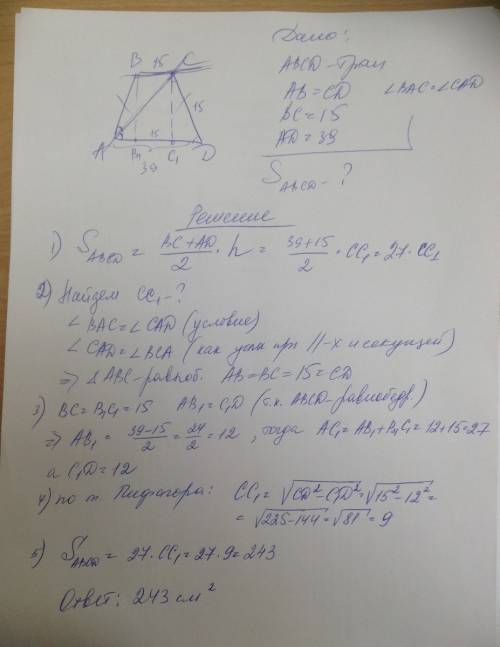 Дано:
ABCD-трап
AB=CD ∠BAC=∠CAD
BC=15
AD=39
S ABCD-?
B 15 C
15
A B₁ 15 C₁ D
39
Решение
1) S ABCD = (BC+AD)/2 · h = (39+15)/2 · CC₁ = 27·CC₁
2) Найдем CC₁-?
∠BAC=∠CAD (условие)
∠CAD=∠BCA (как углы при ||-х и секущей)
⇒ △ABC-равноб. AB=BC=15=CD
3) BC=B₁C₁=15 AB₁=C₁D (т.к. ABCD-равнобедр.)
⇒ AB₁ = (39-15)/2 = 24/2 = 12, тогда AC₁=AB₁+B₁C₁=12+15=27
а C₁D=12
4) по т. Пифагора: CC₁=√(CD²-C₁D²)=√(15²-12²)=
=√(225-144)=√81=9
5) S ABCD = 27·CC₁=27·9=243
Ответ: 243 см²